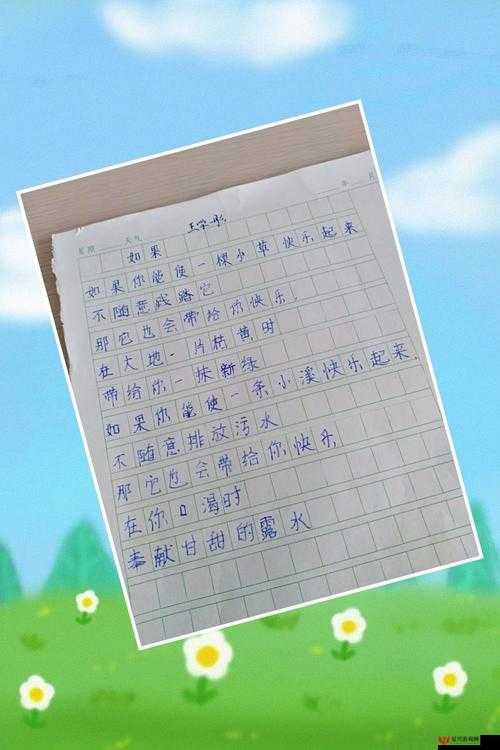 星期 天气 年 月
如果
如果你能使一棵小草快乐起来
不随意践踏它
那它也会带给你快乐.
在大地一片枯黄时
带给你一抹新绿
如果你能使一条小溪快乐起来.
不随意排放污水
那它也会带给你快乐
在你口渴时
奉献甘甜的露水